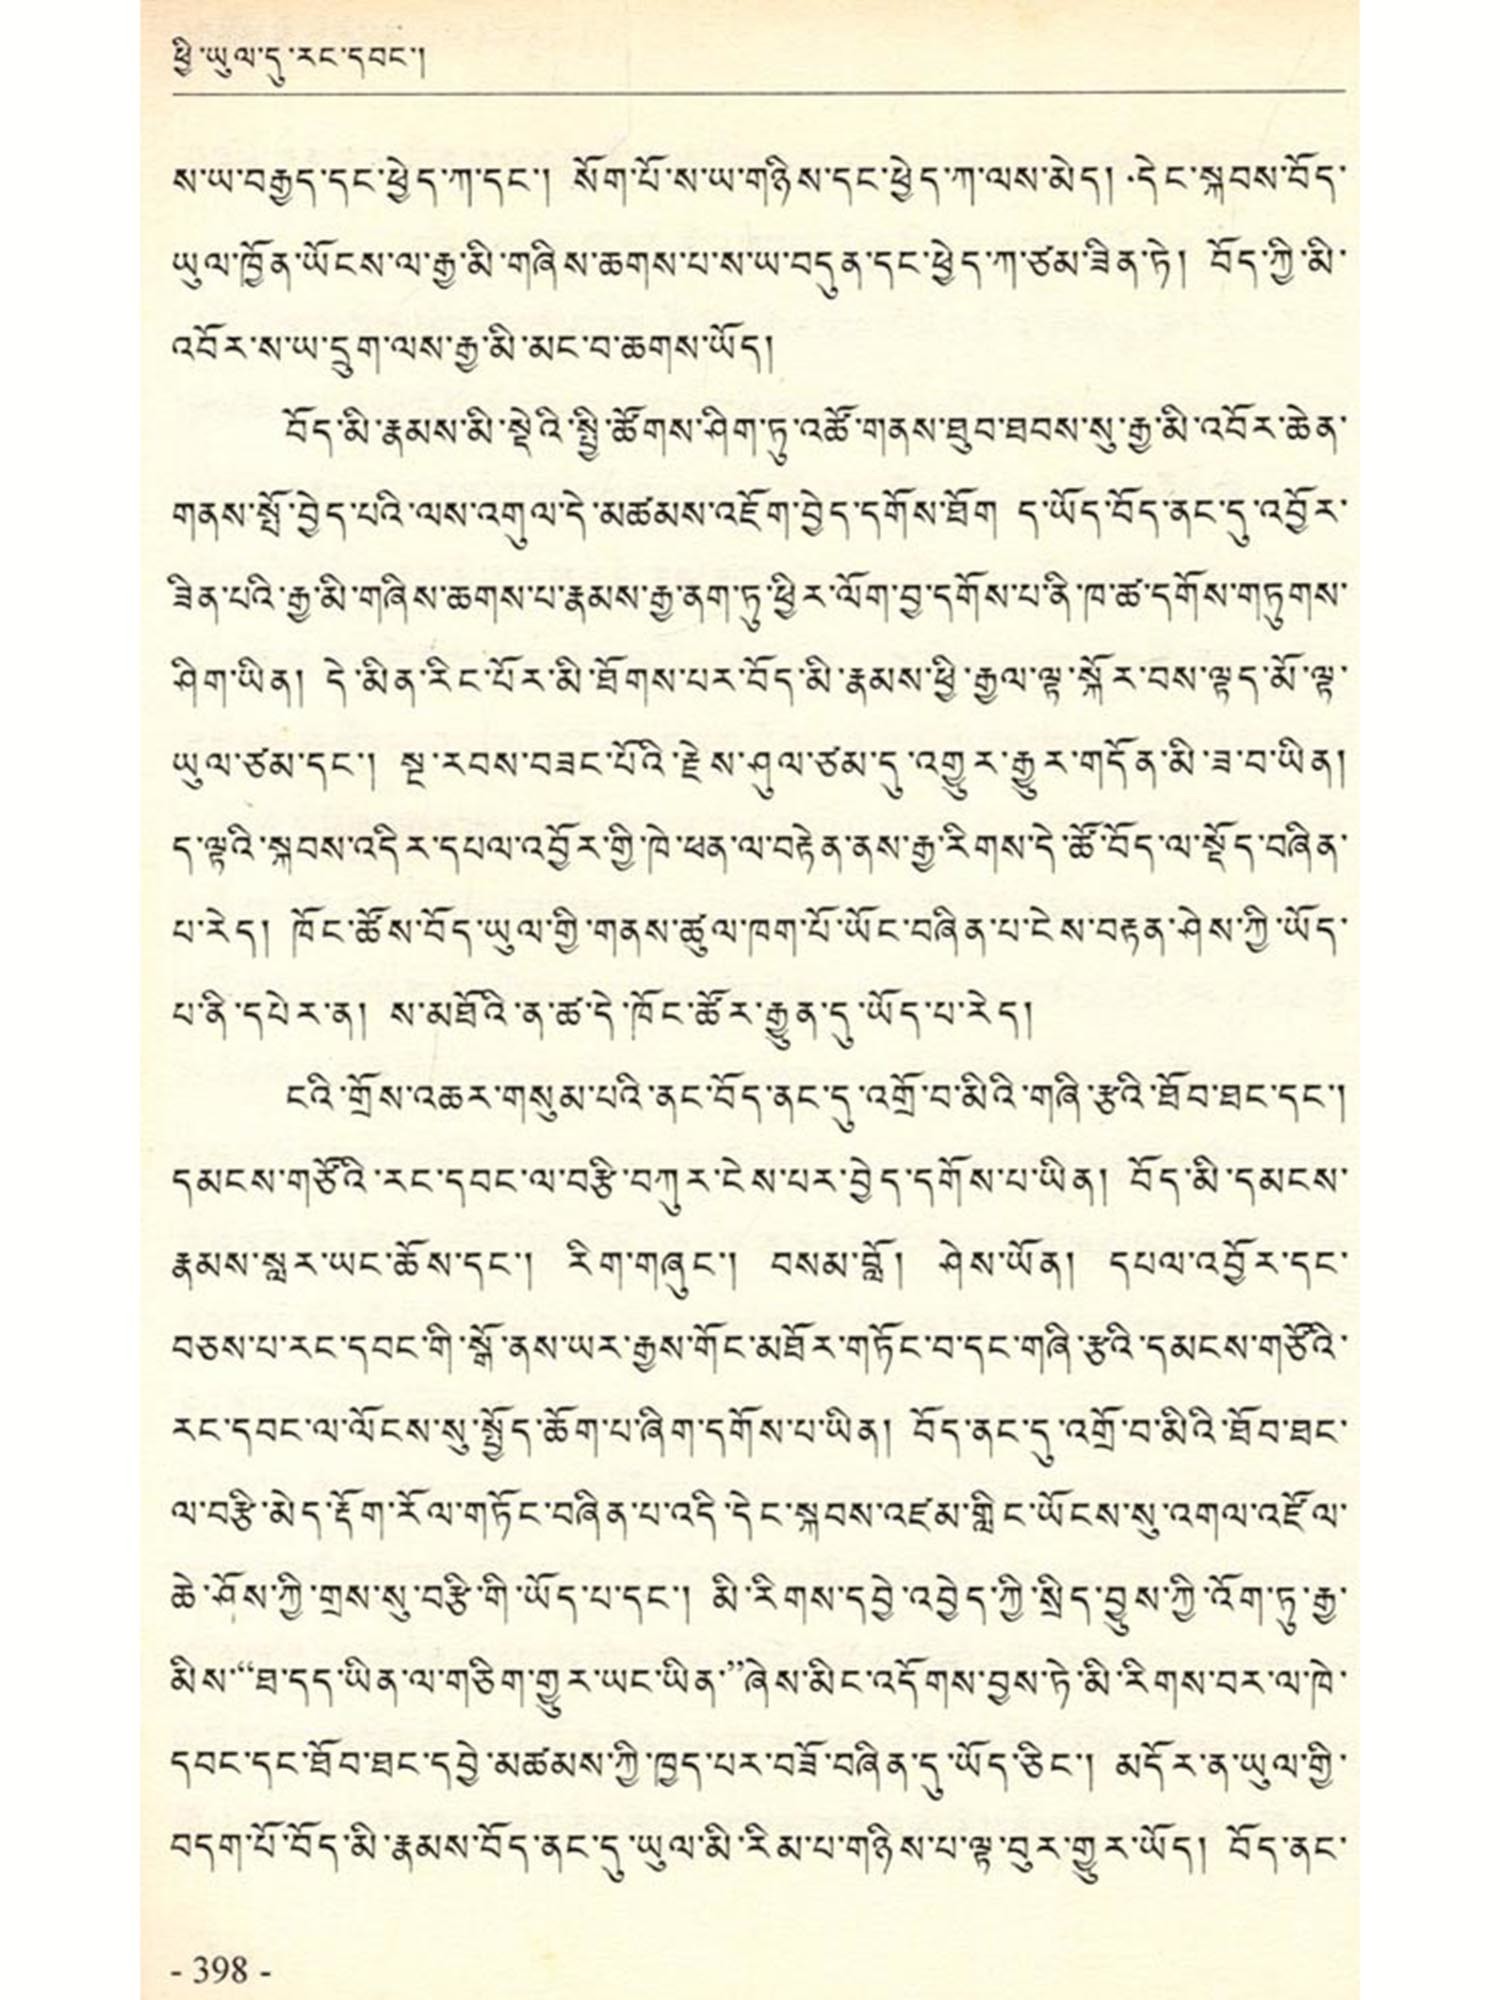 ཕྱི་ཡུལ་དུ་རང་དབང་།
ས་ཡ་བརྒྱད་དང་ཕྱེད་ཀ་དང་། སོག་པོ་ས་ཡ་གཉིས་དང་ཕྱེད་ཀ་ལས་མེད། དེང་སྐབས་བོད་
ཡུལ་ཁྱོན་ཡོངས་ལ་རྒྱ་མི་གཞིས་ཆགས་པ་ས་ཡ་བདུན་དང་ཕྱེད་ཀ་ཙམ་ཟིན་ཏེ། བོད་ཀྱི་མི་
འབོར་ས་ཡ་དྲུག་ལས་རྒྱ་མི་མང་བ་ཆགས་ཡོད།
བོད་མི་རྣམས་མི་སྡེའི་སྤྱི་ཚོགས་ཤིག་ཏུ་འཚོ་གནས་ཐུབ་ཐབས་སུ་རྒྱ་མི་འབོར་ཆེན་
གནས་སྤོ་བྱེད་པའི་ལས་འགུལ་དེ་མཚམས་འཇོག་བྱེད་དགོས་ཐོག ད་ཡོད་བོད་ནང་དུ་འབྱོར་
ཟིན་པའི་རྒྱ་མི་གཞིས་ཆགས་པ་རྣམས་རྒྱ་ནག་ཏུ་ཕྱིར་ལོག་བྱ་དགོས་པ་ནི་ཁ་ཚ་དགོས་གཏུགས་
ཤིག་ཡིན། དེ་མིན་རིང་པོར་མི་ཐོགས་པར་བོད་མི་རྣམས་ཕྱི་རྒྱལ་ལྟ་སྐོར་བས་ལྟད་མོ་ལྟ་
ཡུལ་ཙམ་དང་། སྔ་རབས་བཟང་པོའི་རྗེས་ཤུལ་ཙམ་དུ་འགྱུར་རྒྱུར་གདོན་མི་ཟ་བ་ཡིན།
ད་ལྟའི་སྐབས་འདིར་དཔལ་འབྱོར་གྱི་ཁེ་ཕན་ལ་བརྟེན་ནས་རྒྱ་རིགས་དེ་ཚོ་བོད་ལ་སྡོད་བཞིན་
པ་རེད། ཁོང་ཚོས་བོད་ཡུལ་གྱི་གནས་ཚུལ་ཁག་པོ་ཡོང་བཞིན་པ་ངེས་བརྟན་ཤེས་ཀྱི་ཡོད་
པ་ནི་དཔེར་ན། ས་མཐོའི་ན་ཚ་དེ་ཁོང་ཚོར་རྒྱུན་དུ་ཡོད་པ་རེད།
ངའི་གྲོས་འཆར་གསུམ་པའི་ནང་བོད་ནང་དུ་འགྲོ་བ་མིའི་གཞི་རྩའི་ཐོབ་ཐང་དང་།
དམངས་གཙོའི་རང་དབང་ལ་བརྩི་བཀུར་ངེས་པར་བྱེད་དགོས་པ་ཡིན། བོད་མི་དམངས་
རྣམས་སླར་ཡང་ཆོས་དང་། རིག་གཞུང་། བསམ་བློ། ཤེས་ཡོན། དཔལ་འབྱོར་དང་
བཅས་པ་རང་དབང་གི་སྒོ་ནས་ཡར་རྒྱས་གོང་མཐོར་གཏོང་བ་དང་གཞི་རྩའི་དམངས་གཙོའི་
རང་དབང་ལ་ལོངས་སུ་སྤྱོད་ཆོག་པ་ཞིག་དགོས་པ་ཡིན། བོད་ནང་དུ་འགྲོ་བ་མིའི་ཐོབ་ཐང་
ལ་བརྩི་མེད་རྡོག་རོལ་གཏོང་བཞིན་པ་འདི་དེང་སྐབས་འཛམ་གླིང་ཡོངས་སུ་འགལ་འཛོལ་
ཆེ་ཤོས་ཀྱི་གྲས་སུ་བརྩི་གི་ཡོད་པ་དང་། མི་རིགས་དབྱེ་འབྱེད་ཀྱི་སྲིད་བྱུས་ཀྱི་འོག་ཏུ་རྒྱ་
མིས་“ཐ་དད་ཡིན་ལ་གཅིག་གྱུར་ཡང་ཡིན་”ཞེས་མིང་འདོགས་བྱས་ཏེ་མི་རིགས་བར་ལ་ཁེ་
དབང་དང་ཐོབ་ཐང་དབྱེ་མཚམས་ཀྱི་ཁྱད་པར་བཟོ་བཞིན་དུ་ཡོད་ཅིང་། མདོར་ན་ཡུལ་གྱི་
བདག་པོ་བོད་མི་རྣམས་བོད་ནང་དུ་ཡུལ་མི་རིམ་པ་གཉིས་པ་ལྟ་བུར་གྱུར་ཡོད། བོད་ནང་
- 398 -